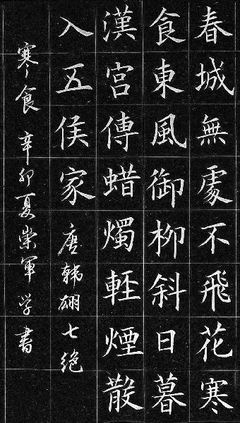 春城無處不飛花寒
食東風御柳斜日暮
漢宮傳蜡燭輕煙散
入五侯家 唐韩翃七绝
寒食 辛卯夏崇军学書